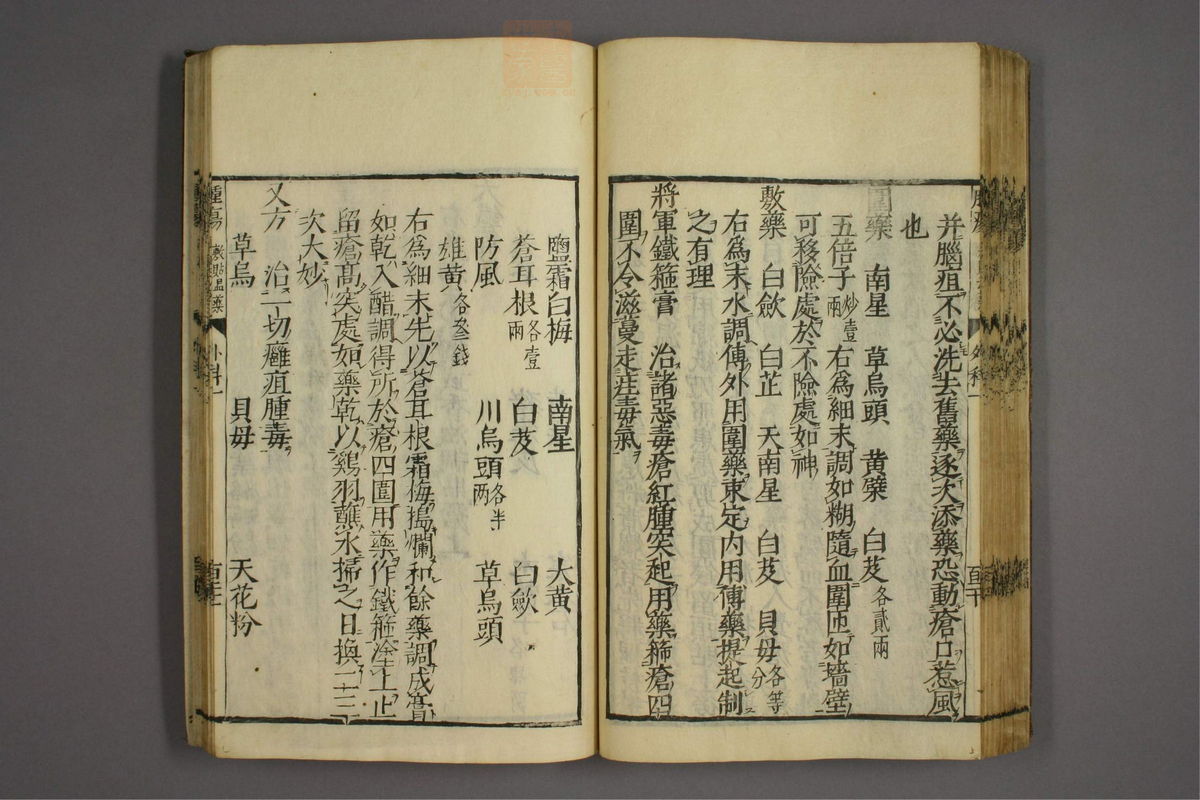 并腦疽不必洗去舊藥逐次添藥恐動瘡口惹風
也
圍藥 南星 草烏頭 黃檗 白芨各貳兩
五倍子炒壹兩右為細末調如糊隨血圍匝如墻壁
可移險處於不險處如神
敷藥 白歛 白芷 天南星 白芨 貝母各等分
右為末水調傅外用圍藥束定內用傅藥提起制
之有理
將軍鐵箍膏 治諸惡毒瘡紅腫突起用藥箍瘡四
圍不令滋蔓走疰毒氣
鹽霜白梅 南星 大黃
蒼耳根各壹兩 白芨 白歛
防風 川烏頭各半兩 草烏頭
雄黃各叁錢
右為細末先以蒼耳根霜梅搗爛和餘藥調成膏
如乾入醋調得所於瘡四圍用藥作鐵箍塗上止
留瘡髙突處如藥乾以鷄羽蘸水掃之日換二三
次大妙
又方 治一切癰疽腫毒
草烏 貝母 天花粉
腫瘍 敷貼温藥 外科一